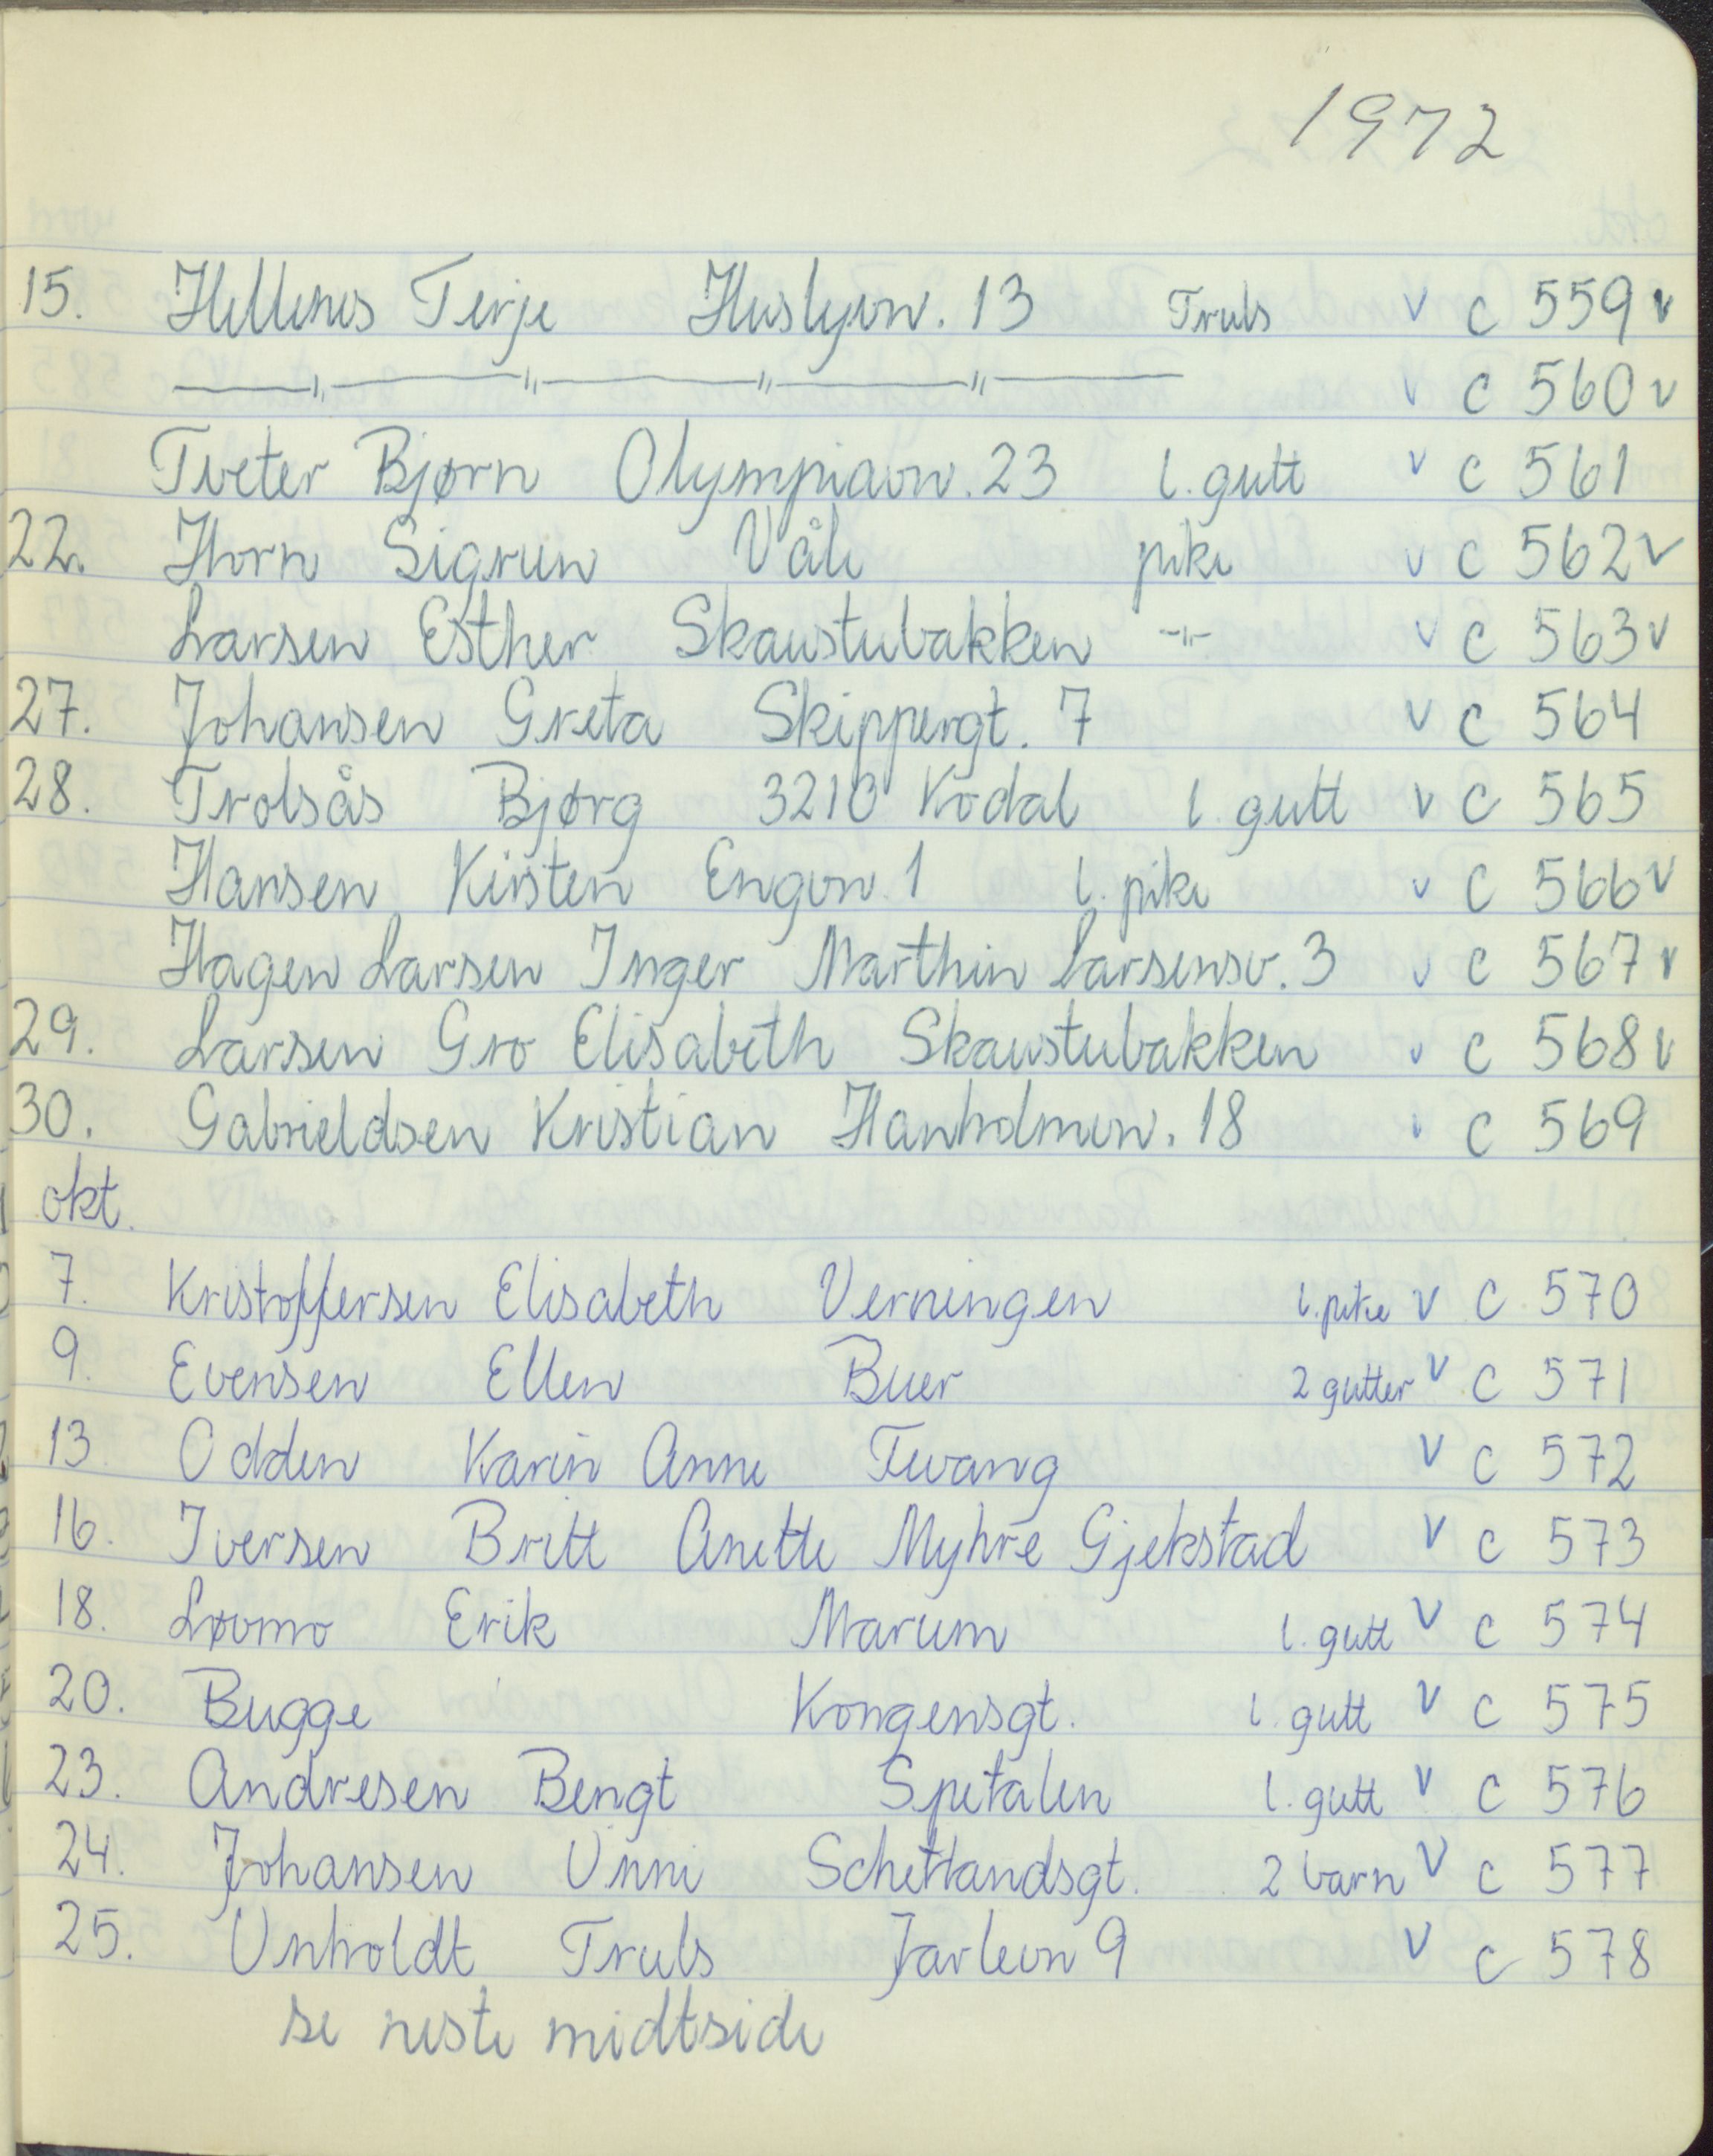 1972
15. Hellenes Terje Huslyvn. 13 Truls v c 559 v
—〃—〃—〃—〃— v c 560 v
Tveter Bjørn Olympiavn. 23 1. gutt v c 561
22. Horn Sigrun Våle pike v c 562 v
Larsen Esther Skaustubakken -〃- v c 563 v
27. Johansen Greta Skippergt. 7 v c 564
28. Trolsås Bjørg 3210 Kodal 1. gutt v c 565
Hansen Kirsten Engvn. 1 1. pike v c 566 v
Hagen Larsen Inger Marthin Larsensv. 3 v c 567 v
29. Larsen Gro Elisabeth Skaustubakken v c 568 v
30. Gabrieldsen Kristian Hanholmvn. 18 v c 569
okt.
7. Kristoffersen Elisabeth Verningen 1. pike v c 570
9. Evensen Ellen Buer 2 gutter v c 571
13 Odden Karin Anne Tuvang v c 572
16. Iversen Britt Anette Myhre Gjekstad v c 573
18. Løvmo Erik Marum 1. gutt v c 574
20. Bugge Kongensgt. 1. gutt v c 575
23. Andresen Bengt Spetalen 1. gutt v c 576
24. Johansen Unni Schetlandsgt. 2 barn v c 577
25. Unholdt Truls Jarlevn 9 v c 578
se neste midtside